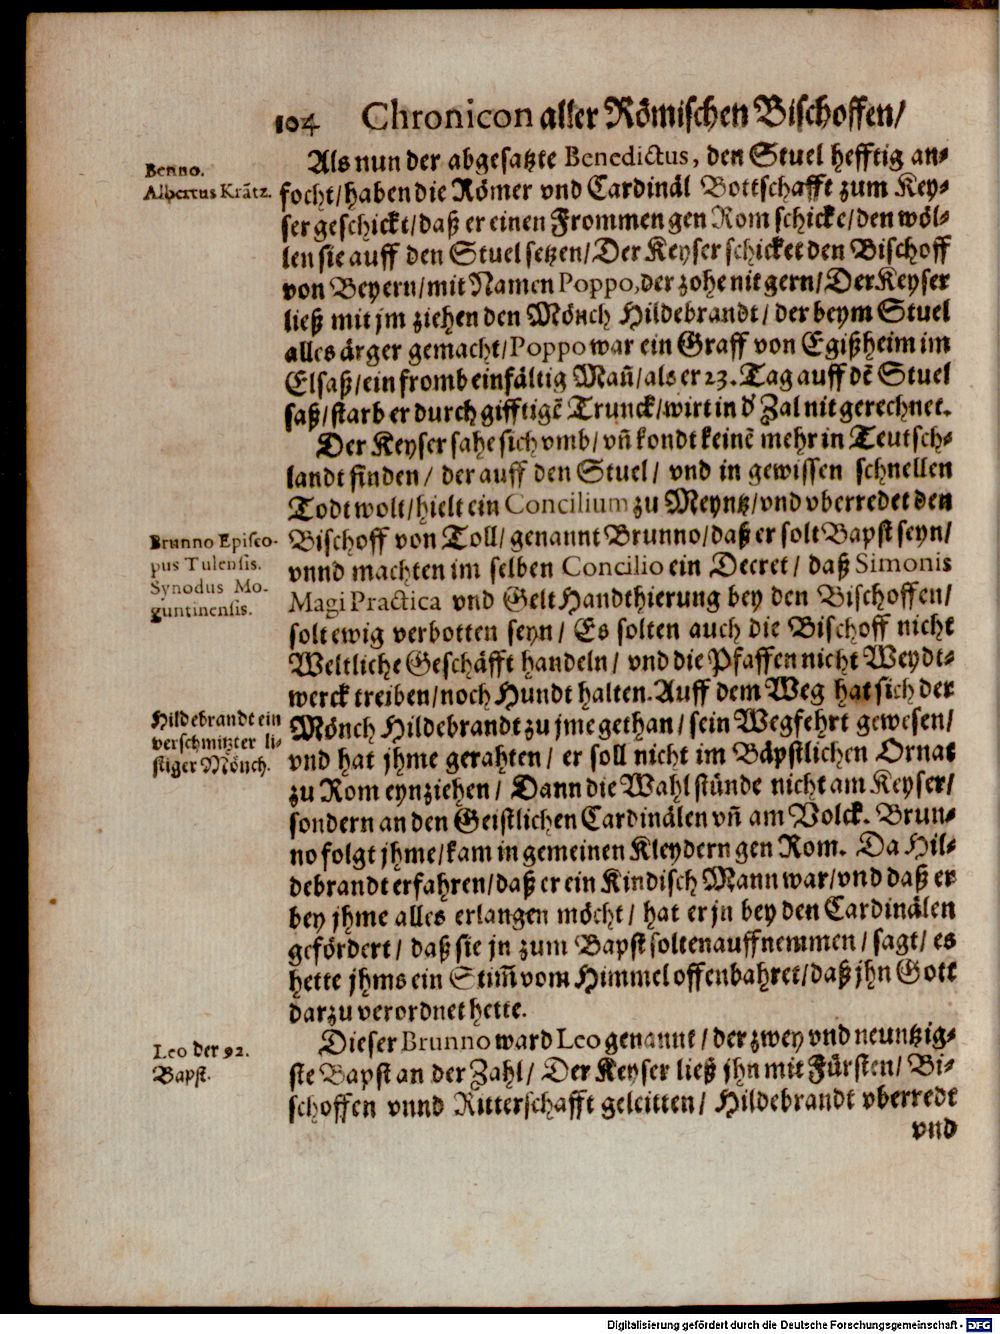 104 Chronicon aller Römischen Bischoffen/
Benno.
Albertus Krãtz.
Als nun der abgesatzte Benedictus, den Stuel hefftig an-
focht/haben die Römer vnd Cardinäl Bottschafft zum Key-
ser geschickt/daß er einen Frommen gen Rom schicke/den wöl-
len sie auff den Stuel setzen/Der Keyser schicket den Bischoff
von Beyern/mit Namen Poppo, der zohe nit gern/Der Keyser
ließ mit jm ziehen den Mönch Hildebrandt/der beym Stuel
alles ärger gemacht/Poppo war ein Graff von Egißheim im
Elsaß/ein fromb einfältig Mañ/als er 23. Tag auff dẽ Stuel
saß/starb er durch gifftigẽ Trunck/wirt in d' Zal nit gerechnet.
Der Keyser sahe sich vmb/vñ kondt keinẽ mehr in Teutsch-
landt finden/der auff den Stuel/vnd in gewissen schnellen
Todt wolt/hielt ein Concilium zu Meyntz/vnd vberredet den
Brunno Episco-
pus Tulensis.
Synodus Mo-
guntinensis.
Bischoff von Toll/genannt Brunno/daß er solt Bapst seyn/
vnnd machten im selben Concilio ein Decret/daß Simonis
Magi Practica vnd Gelt Handthierung bey den Bischoffen/
solt ewig verbotten seyn/Es solten auch die Bischoff nicht
Weltliche Geschäfft handeln/vnd die Pfaffen nicht Weydt-
werck treiben/noch Hundt halten. Auff dem Weg hat sich der
Hildebrandt ein
verschmitzter li-
stiger Mönch.
Mönch Hildebrandt zu jme gethan/sein Wegfehrt gewesen/
vnd hat jhme gerahten/er soll nicht im Bäpstlichen Ornat
zu Rom eynziehen/Dann die Wahl stünde nicht am Keyser/
sondern an den Geistlichen Cardinälen vñ am Volck. Brun-
no folgt jhme/kam in gemeinen Kleydern gen Rom. Da Hil-
debrandt erfahren/daß er ein Kindisch Mann war/vnd daß er
bey jhme alles erlangen möcht/hat er jn bey den Cardinälen
gefördert/daß sie jn zum Bapst solten auffnemmen/sagt/es
hette jhms ein Stim̃ vom Himmel offenbahret/daß jhn Gott
darzu verordnet hette.
Leo der 92.
Bapst.
Dieser Brunno ward Leo genannt/der zwey vnd neuntzig-
ste Bapst an der Zahl/Der Keyser ließ jhn mit Fürsten/Bi-
schoffen vnnd Ritterschafft geleitten/Hildebrandt vberredt
vnd
Digitalisierung gefördert durch die Deutsche Forschungsgemeinschaft - DFG